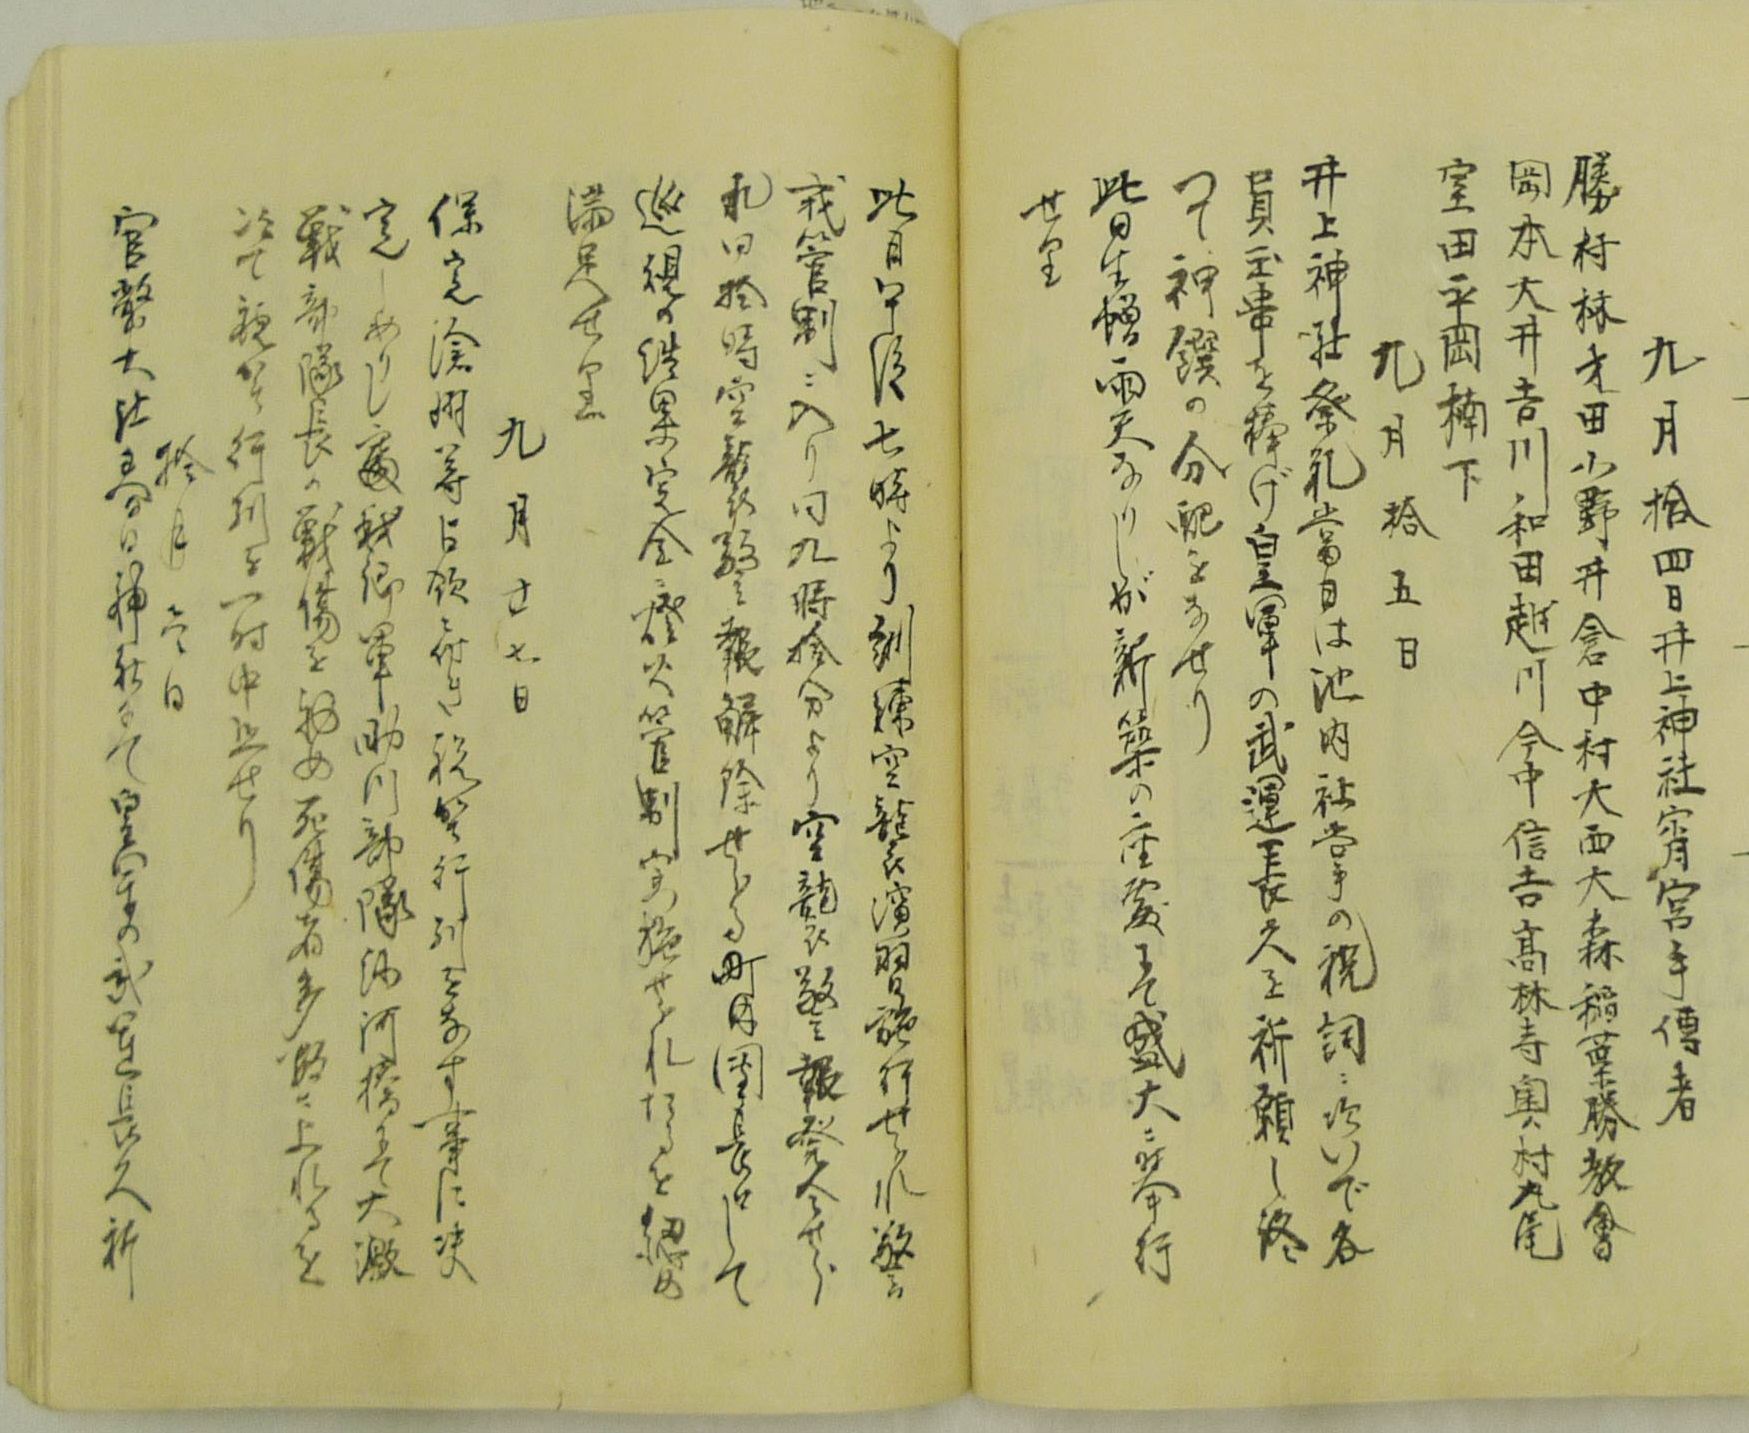 九月拾四日井上神社宵宮手傳者
勝村林才田小野井倉中村大西大森稲葉勝教會
岡本大井吉川和田越川今中信吉高林寺奥村丸尾
室田平岡楠下
九月拾五日
井上神社祭礼當日は池内社掌の祝詞ニ次いで各
員玉串を捧げ皇軍の武運長久を祈願し終
つて神饌の分配をなせり
此日生憎雨天なりしが新築の座敷にて盛大ニ挙行
せり
此日午后七時より訓練空襲演習施行せられ警
戒管制ニ入り同九時拾分より空襲警報発令せら
れ同拾時空襲警報解除せらる町内團長して
巡視の結果完全ニ燈火管制実施せられたるを認め
満足せり
九月廿七日
保定滄州等占領ニ付き祝賀行列をなす事に決
定しありし處我郷軍助川部隊沙河橋にて大激
戦部隊長の戦傷を初め死傷者多数ニ上れるを
以て祝賀行列を一時中止せり
拾月壱日
官幣大社 神社にて皇軍の武運長久祈